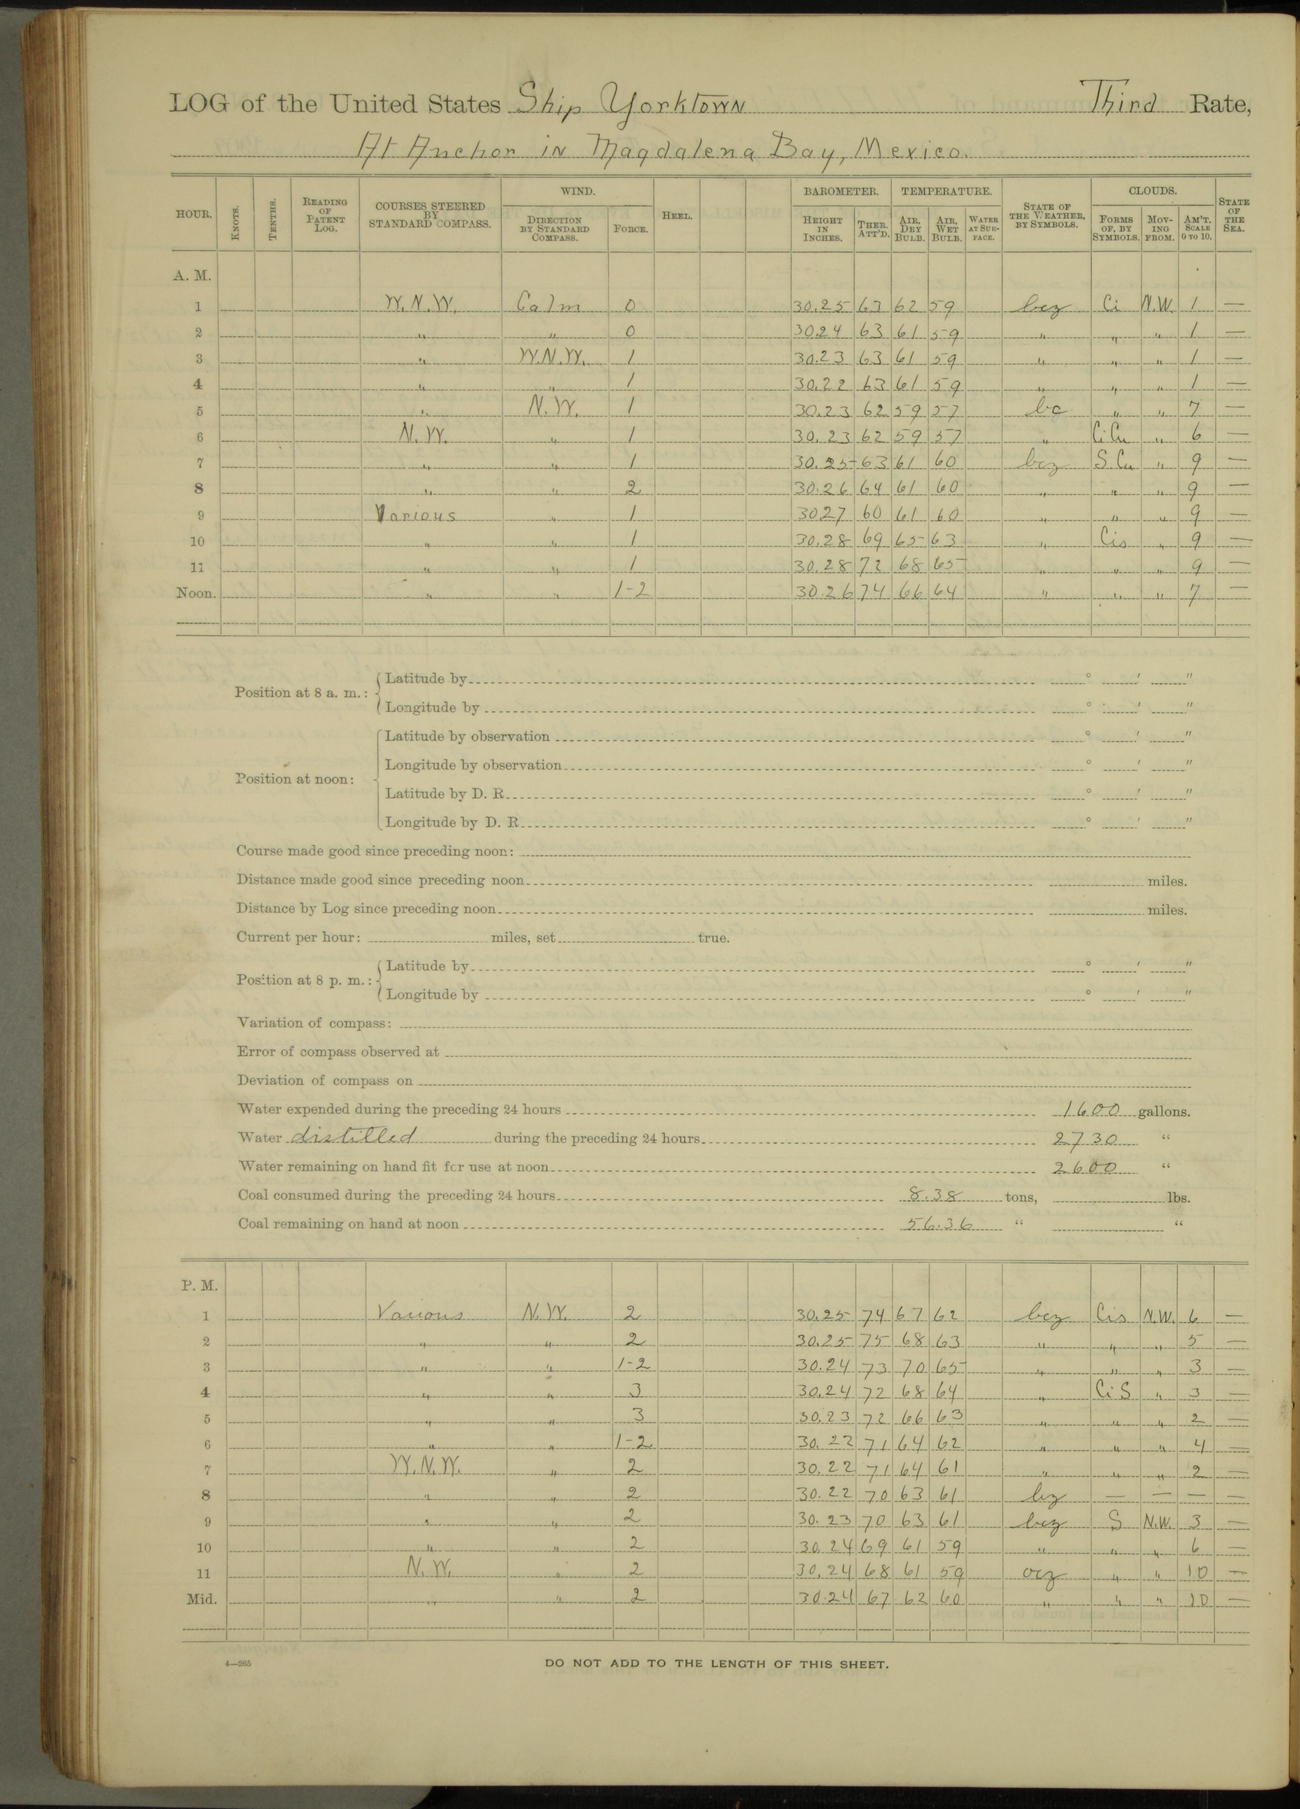 LOG of the United States Ship Yorktown Third Rate,
At Anchor in Magdalena Bay, Mexico.
HOUR. KNOTS. TENTHS. READING OF PATENT LOG. COURSES STEERED BY STANDARD COMPASS. WIND. DIRECTION BY STANDARD COMPASS. FORCE. HEEL. BAROMETER. HEIGHT IN INCHES. THER. ATT'D. TEMPERATURE. AIR, DRY BULB. AIR, WET BULB. WATER AT SURFACE. STATE OF THE WEATHER, BY SYMBOLS. CLOUDS. FORMS OF, BY SYMBOLS. MOVING FROM. AM'T. SCALE 0 TO 10. STATE OF THE SEA.
A. M.
1 W.N.W. Calm 0 30.25 63 62 59 bcz Ci N.W. 1 —
2 " " 0 30.24 63 61 59 " " " 1 —
3 " W.N.W. 1 30.23 63 61 59 " " " 1 —
4 " " 1 30.22 63 61 59 " " " 1 —
5 " N.W. 1 30.23 62 59 57 bc " " 7 —
6 N.W. " 1 30.23 62 59 57 " CiCu " 6 —
7 " " 1 30.25 63 61 60 bcz S.Cu " 9 —
8 " " 2 30.26 64 61 60 " " " 9 —
9 Various " 1 3027 60 61 60 " " " 9 —
10 " " 1 30.28 69 65 63 " Cis " 9 —
11 " " 1 30.28 72 68 65 " " " 9 —
Noon. " " 1-2 30.26 74 66 64 " " " 7 —
Position at 8 a. m.: Latitude by ° ' "
Longitude by ° ' "
Position at noon: Latitude by observation ° ' "
Longitude by observation ° ' "
Latitude by D. R. ° ' "
Longitude by D. R. ° ' "
Course made good since preceding noon:
Distance made good since preceding noon miles.
Distance by Log since preceding noon miles.
Current per hour: miles, set true.
Position at 8 p. m.: Latitude by ° ' "
Longitude by ° ' "
Variation of compass:
Error of compass observed at
Deviation of compass on
Water expended during the preceding 24 hours 1600 gallons.
Water distilled during the preceding 24 hours 2730 "
Water remaining on hand fit for use at noon 2600 "
Coal consumed during the preceding 24 hours 8.38 tons, lbs.
Coal remaining on hand at noon 56.36 " "
P. M.
1 Various N.W. 2 30.25 74 67 62 bcz Cis N.W. 6 —
2 " " 2 30.25 75 68 63 " " " 5 —
3 " " 1-2 30.24 73 70 65 " " " 3 —
4 " " 3 30.24 72 68 64 " CiS " 3 —
5 " " 3 30.23 72 66 63 " " " 2 —
6 " " 1-2 30.22 71 64 62 " " " 4 —
7 W.N.W. " 2 30.22 71 64 61 " " " 2 —
8 " " 2 30.22 70 63 61 bz — — — —
9 " " 2 30.23 70 63 61 bcz S N.W. 3 —
10 " " 2 30.24 69 61 59 " " " 6 —
11 N.W. " 2 30.24 68 61 59 ocz " " 10 —
Mid. " " 2 30.24 67 62 60 " " " 10 —
4—265
DO NOT ADD TO THE LENGTH OF THIS SHEET.